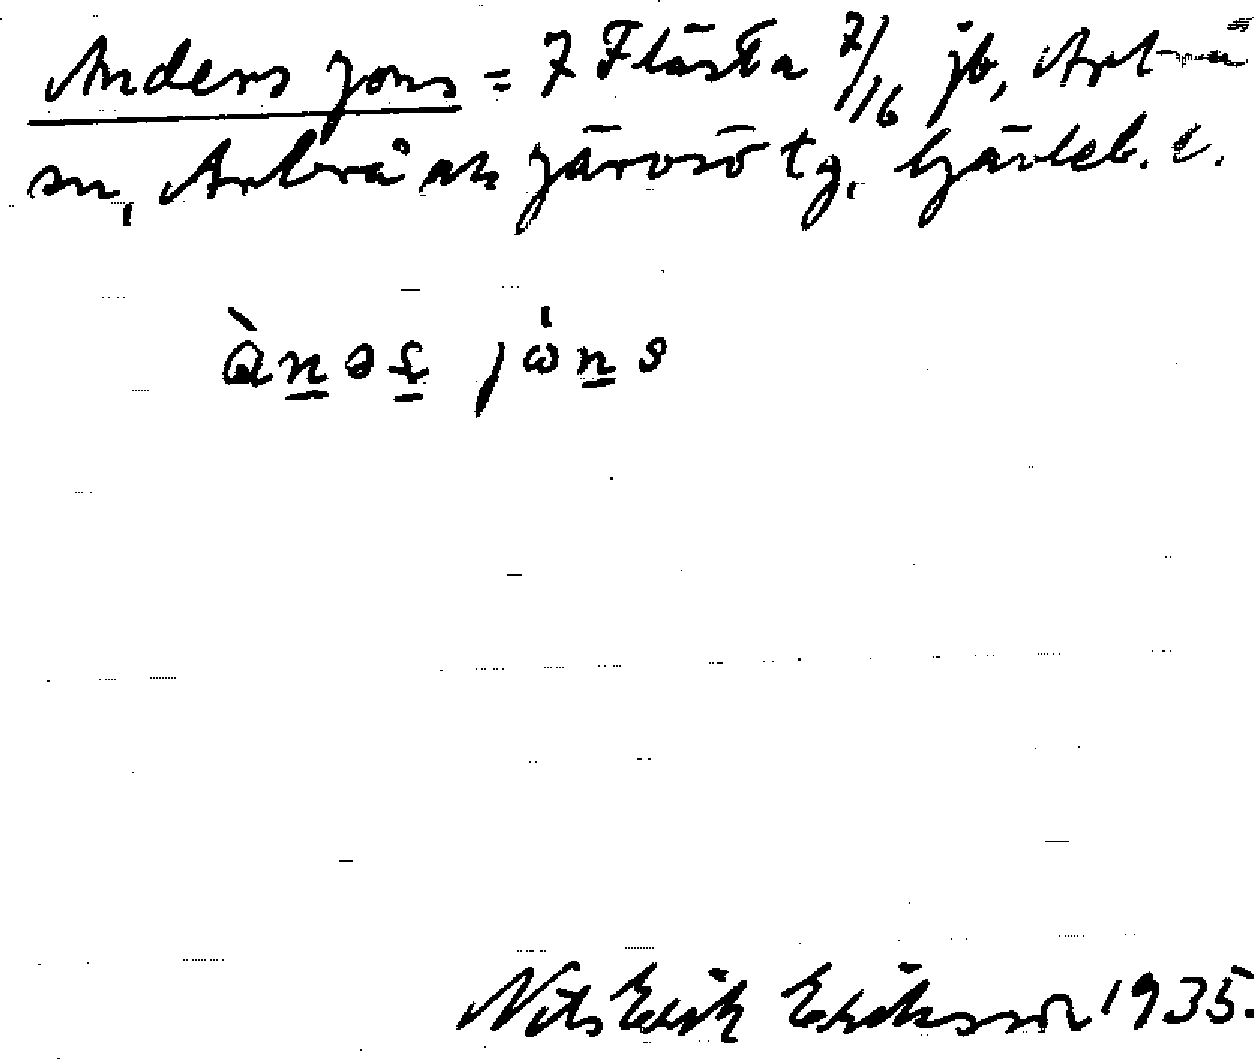 Anders Jons = 7 Flästa 7/16 jb, Arbrå
sn, Arbrå och Järvsö tg, Gävleb. l.
ànəș jo̍ns
Nils Erik Eriksson 1935.